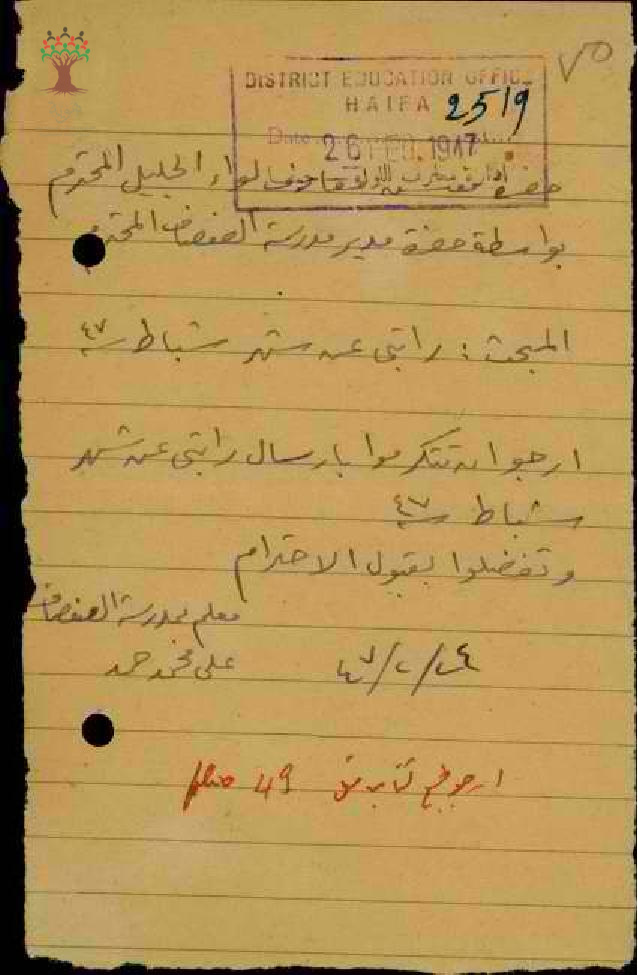 ٧٥
DISTRICT EDUCATION OFFICE
HAIFA
2519
Date 26 FEB. 1947
حضرة معارف لواء الجليل المحترم
بواسطة حضرة مدير مدرسة الصفصاف المحترم
المبحث : راتبي عن شهر شباط سنة ٤٧
ارجو ان تتكرموا بارسال راتبي عن شهر
شباط سنة ٤٧
وتفضلوا بقبول الاحترام
معلم بمدرسة الصفصاف
علي محمد حمد
٢٤/٢/٤٧
49